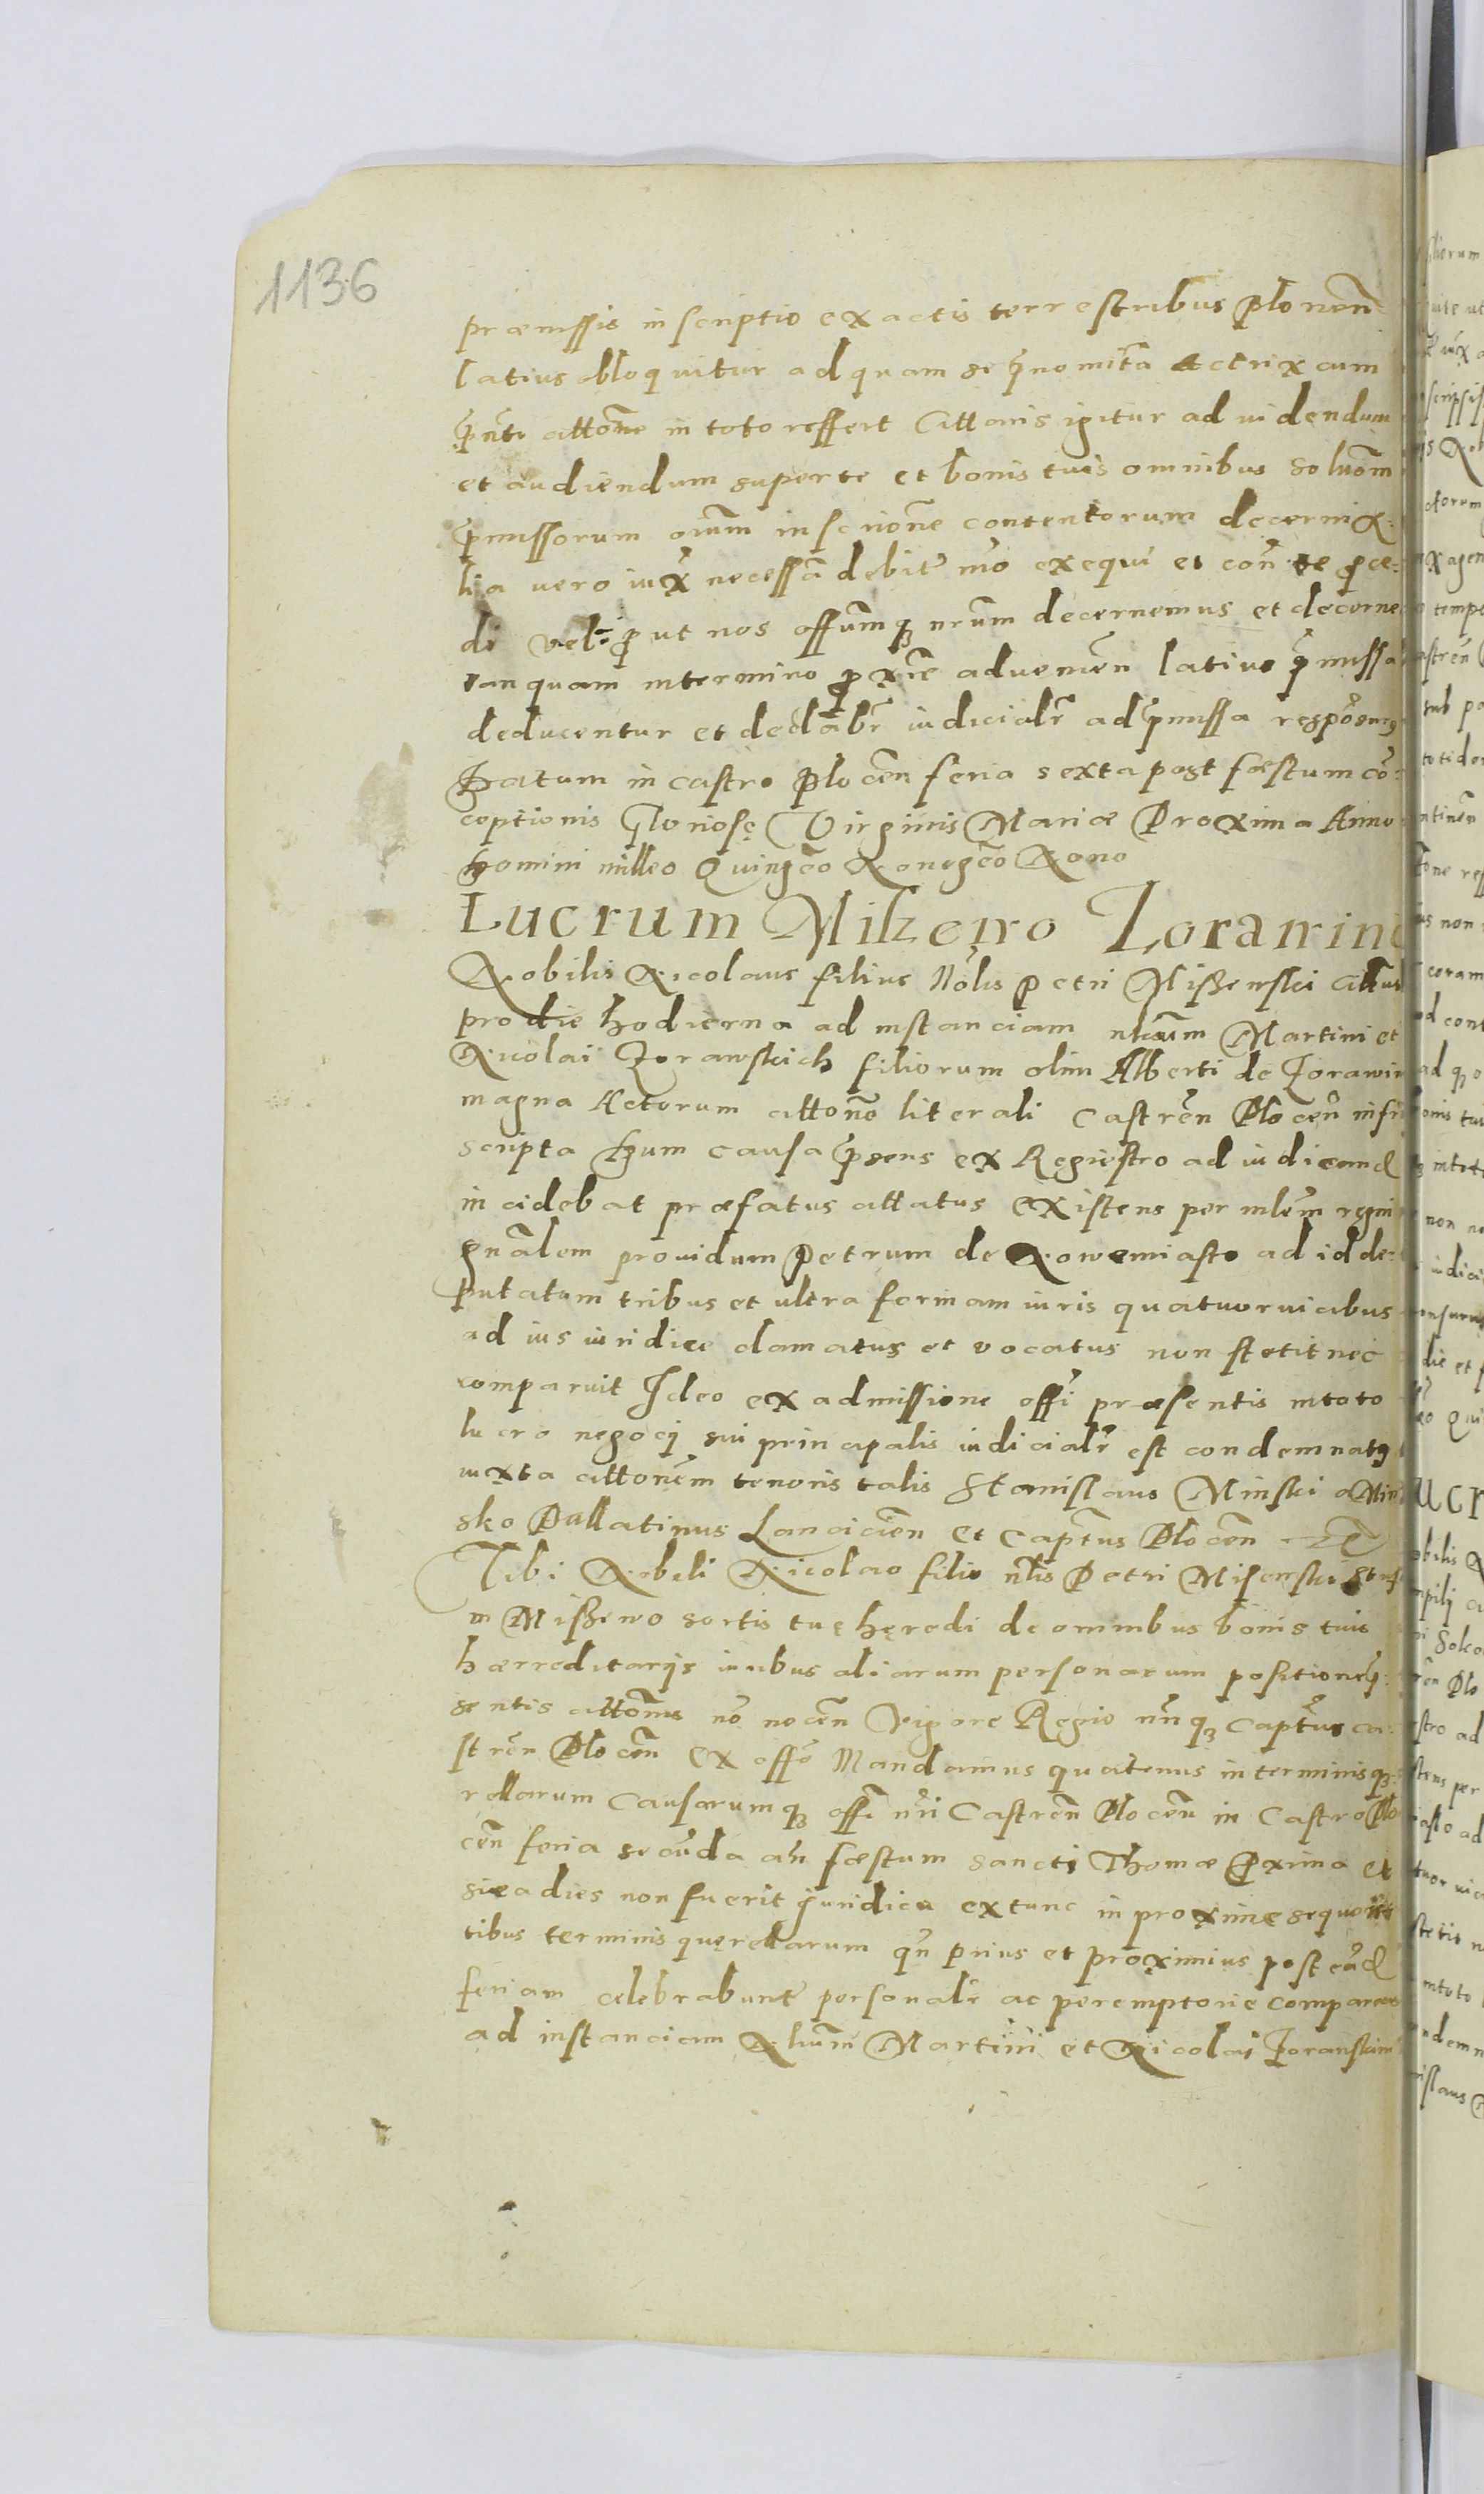 1136
præmissis inscriptio ex actis terrestribus Plonen̄
latius obloquitur ad quam se p̄nomita Actrix cum
p̄nti citt̄one in toto reffert Cittaris igitur ad videndum
et audiendum super te et bonis tuis omnibus soluōm
p̄missorum oīum in scrīone contentorum decerni
lia vero iux̄ necessā debit̄ mō exequi et con̄ te proce:
di vel: prout nos offūmq̨ nrūm decernemus et decerne
tanquam in termino prox̄ie aduenien̄ latius p̄missa
deducentur et declābr̄ iudicialr̄ ad p̄missa respōsurus
Datum in castro Plocen̄ feria sexta post fæstum cō:
ceptionis Gloriosę Virginis Mariæ Proxima Anno
Domini milleo Quingēo Nonegēo Nono
Lucrum Miszewo Zorawin
Nobilis Nicolaus filius Nōlis Petri Miszewski Cittatus
pro die hodierna ad instanciam nlium Martini et
Nicolai Zorawskich filiorum olim Alberti de Zorawin
magna Actorum citt̄one literali Castren̄ Plocen̄ infra
scripta Dum causa p̄sens ex Regiestro ad iudicand
incidebat præfatus cittatus existens per mlēm regni
gnālem prouidum Petrum de Nowemiasto ad id de:
putatum tribus et ultra formam iuris quatuor vicibus
ad ius iuridice clamatus et vocatus non stetit nec
comparuit Ideo ex admissione offī præsentis in toto
lucro negocij sui principalis iudicialr̄ est condemnatus
iuxta citt̄onem tenoris talis Stanislaus Minski a Min
sko Pallatinus Lancicien̄ et Captēus Plocen̄
Tibi Nobili Nicolao filio nlis Petri Misewski
in Miszewo sortis tuę hęredi de omnibus bonis tuis
hærreditarijs iuribus aliarum personarum positione p̄:
sentis citt̄onis nō nocen̄ Vigore Regio nrōq̨ Captēus ca:
stren̄ Plocen̄ ex offō Mandamus quatenus in terminis que:
rellarum Causarumq̨ offī nrī Castren̄ Plocen̄ in Castro Plo
cen̄ feria secūda an̄ fæstum sancti Thomæ Proxima et
si ea dies non fuerit juridica extunc in proxime sequen
tibus terminis quęrellarum qn̄ prius et proximius post eād
feriam celebrabunt̄ personalr̄ ac peremptorie compareas
ad instanciam Nlium Martini et Nicolai Zorawskim